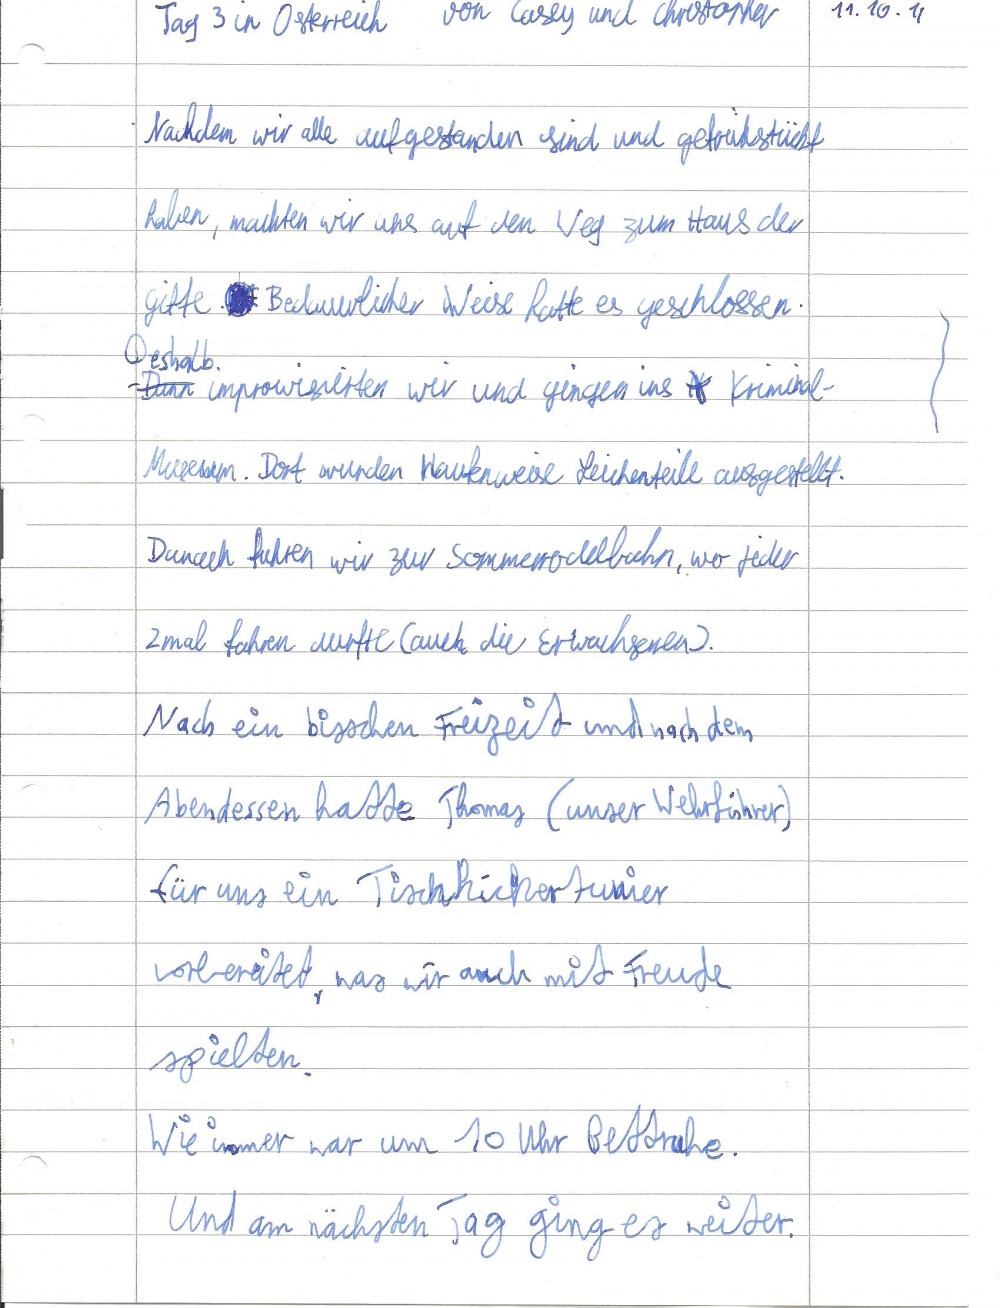 Tag 3 in Österreich von Casey und Christopher 11.10.11
Nachdem wir alle aufgestanden sind und gefrühstückt
haben, machten wir uns auf den Weg zum Haus der
gifte. Bedauerlicher Weise hatte es geschlossen.
Deshalb.
Dann improwisierten wir und gingen ins Kriminal-
Museum. Dort wurden Haufenweise Leichenteile ausgestellt.
Danach fuhren wir zur Sommerrodelbahn, wo jeder
2mal fahren durfte (auch die Erwachsenen).
Nach ein bisschen Freizeit und nach dem
Abendessen hatte Thomas (unser Wehrführer)
für uns ein Tischkickerturnier
vorbereitet, was wir auch mit Freude
spielten.
Wie immer war um 10 Uhr Bettruhe.
Und am nächsten Tag ging es weiter.